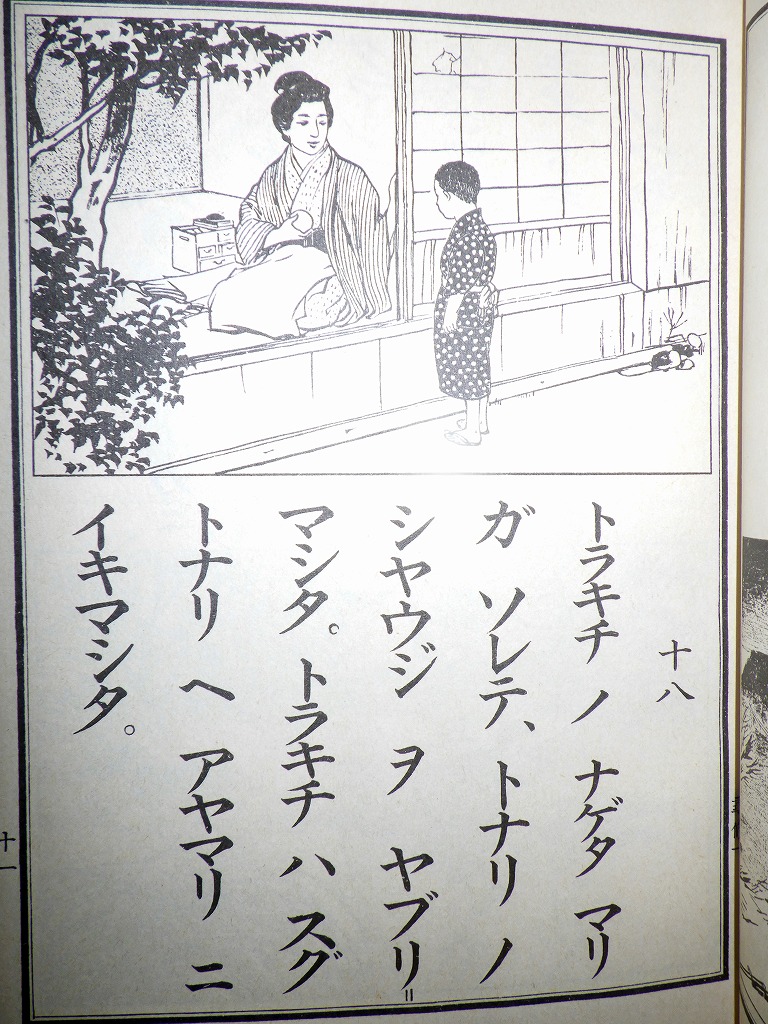 十八
トラキチ ノ ナゲタ マリ
ガ ソレテ、トナリ ノ
シヤウジ ヲ ヤブリ＝
マシタ。トラキチ ハ スグ
トナリ ヘ アヤマリ ニ
イキマシタ。
十一